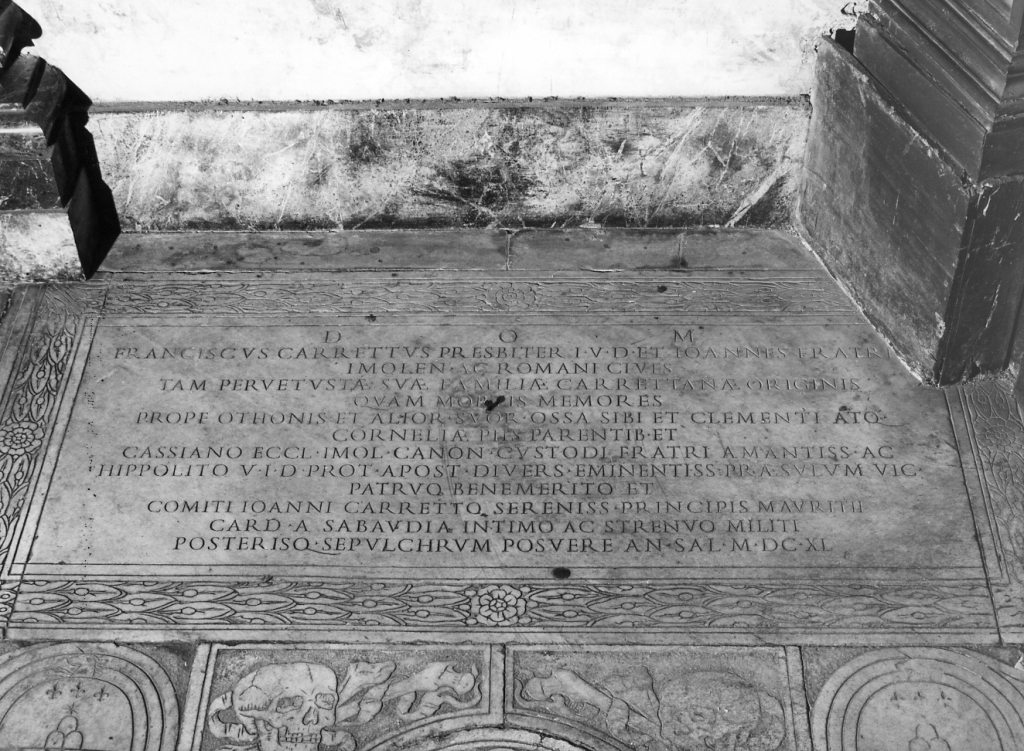 D O M
FRANCISCVS CARRETTVS PRESBITER I·V·D·ET IOANNES FRATRI
IMOLEN·AC ROMANI CIVES
TAM PERVETVSTÆ SVÆ FAMILIÆ CARRETTANÆ ORIGINIS
QVAM MORTIS MEMORES
PROPE OTHONIS ET OSSA SIBI ET CLEMENTI ATQ
CORNELIÆ PIIS PARENTIB·ET
CASSIANO ECCL·IMOL·CANON·CVSTODI FRATRI AMANTISS·AC
HIPPOLITO V·I·D·PROT·APOST·DIVERS·EMINENTISS· VIC·
PATRVO BENEMERITO ET
COMITI IOANNI CARRETTO SERENISS·PRINCIPIS MAVRITII
CARD·A SABAVDIA INTIMO AC STRENVO MILITI
POSTERISQ·SEPVLCHRVM POSVERE AN·SAL·M·DC·XL